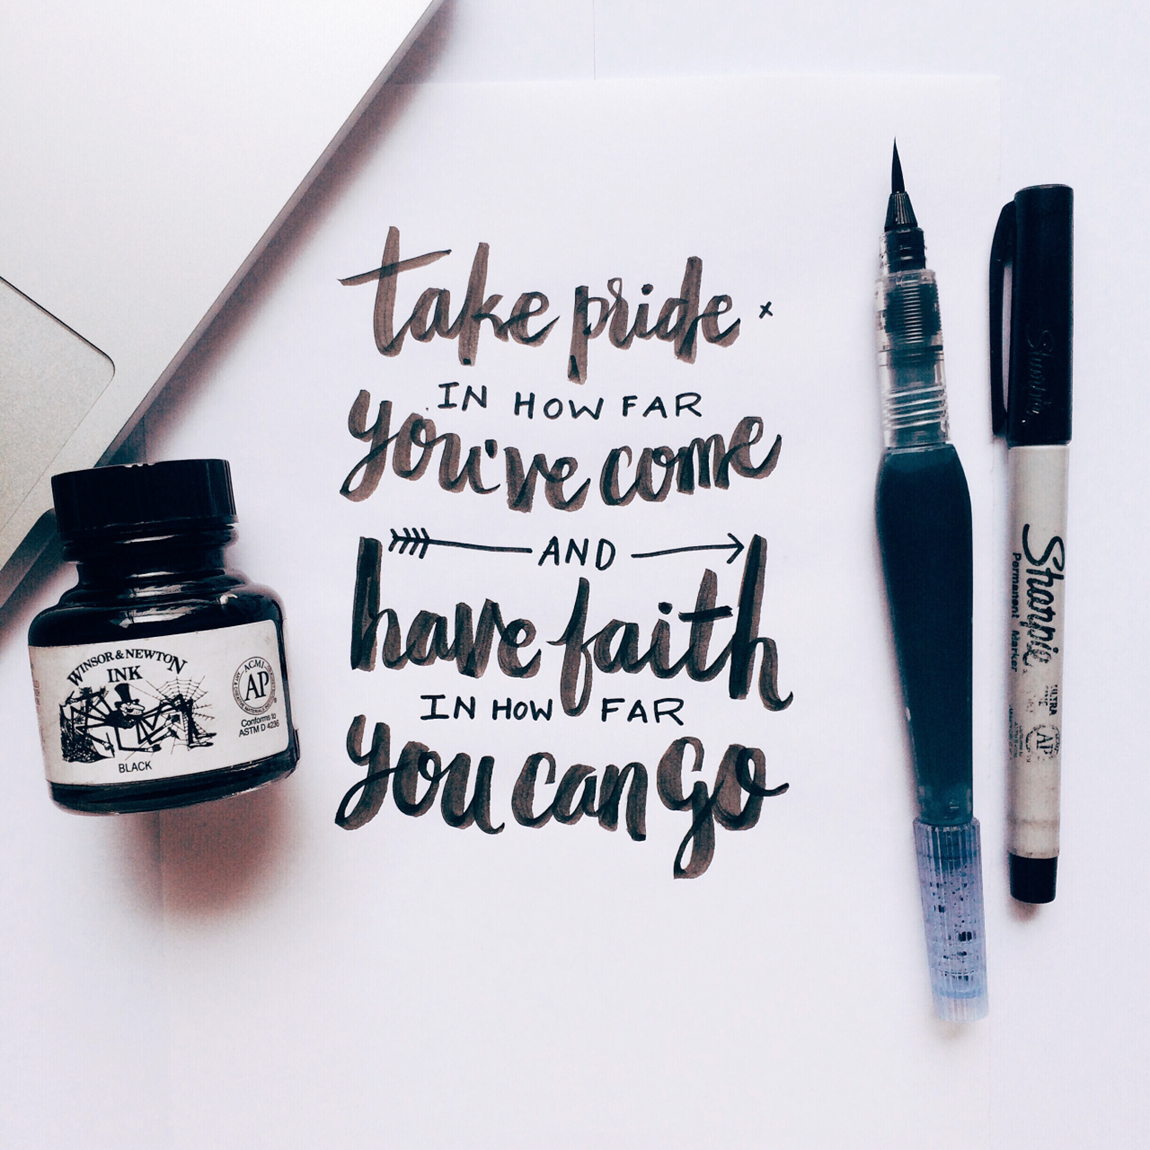 take pride x
IN HOW FAR
you've come
AND
have faith
IN HOW FAR
you can go
WINSOR & NEWTON
INK
BLACK
ACMI
AP
Conforms to
ASTM D 4236
Sharpie
Permanent Marker
ULTRA
FINE
AP